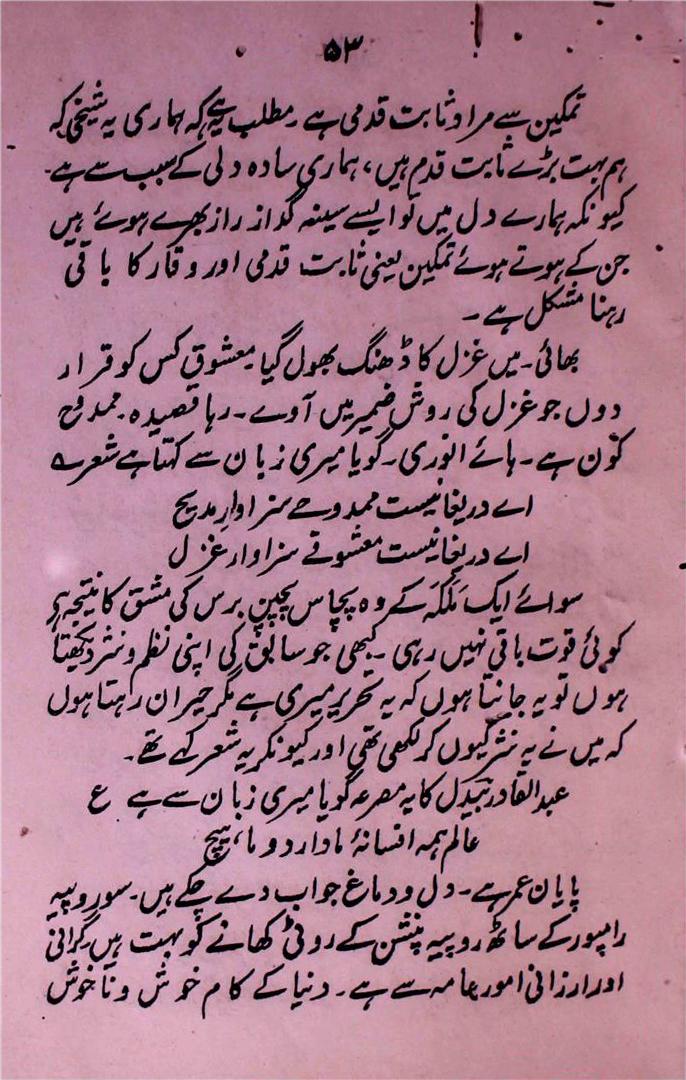 ۵۳
تمکین سے مراد ثابت قدمی ہے ۔ مطلب یہ ہے کہ ہماری یہ شیخی کہ
ہم بہت بڑے ثابت قدم ہیں، ہماری سادہ دلی کے سبب سے ہے۔
کیونکہ ہمارے دل میں تو ایسے سینہ گداز راز بھرے ہوئے ہیں
جن کے ہوتے ہوئے تمکین یعنی ثابت قدمی اور وقار کا باقی
رہنا مشکل ہے ۔
بھائی ۔ میں غزل کا ڈھنگ بھول گیا۔ معشوق کس کو قرار
دوں جو غزل کی روش ضمیر میں آوے ۔ رہا قصیدہ ۔ ممدوح
کون ہے ۔ ہائے انوری ۔ گویا میری زبان سے کہتا ہے شعر ؎
اے دریغا نیست ممدوحے سزاوارِ مدیح
اے دریغا نیست معشوقے سزاوار غزل
سوائے ایک مَلَکَہ کے وہ پچاس پچپن برس کی مشق کا نتیجہ ہے
کوئی قوت باقی نہیں رہی ۔ کبھی جو سابق کی اپنی نظم و نثر دیکھتا
ہوں تو یہ جانتا ہوں کہ یہ تحریر میری ہے مگر حیران رہتا ہوں
کہ میں نے یہ نثر کیوں کر لکھی تھی اور کیونکر یہ شعر کہے تھے ۔
عبدالقادر بیدل کا یہ مصرعہ گویا میری زبان سے ہے ع
عالم ہمہ افسانۂ ما دارد و ما ہیچ
پایان عمر ہے ۔ دل و دماغ جواب دے چکے ہیں ۔ سو روپیہ
رامپور کے ساٹھ روپیہ پنشن کے روٹی کھانے کو بہت ہیں گرانی
اور ارزانی امور عامہ سے ہے ۔ دنیا کے کام خوش و ناخوش